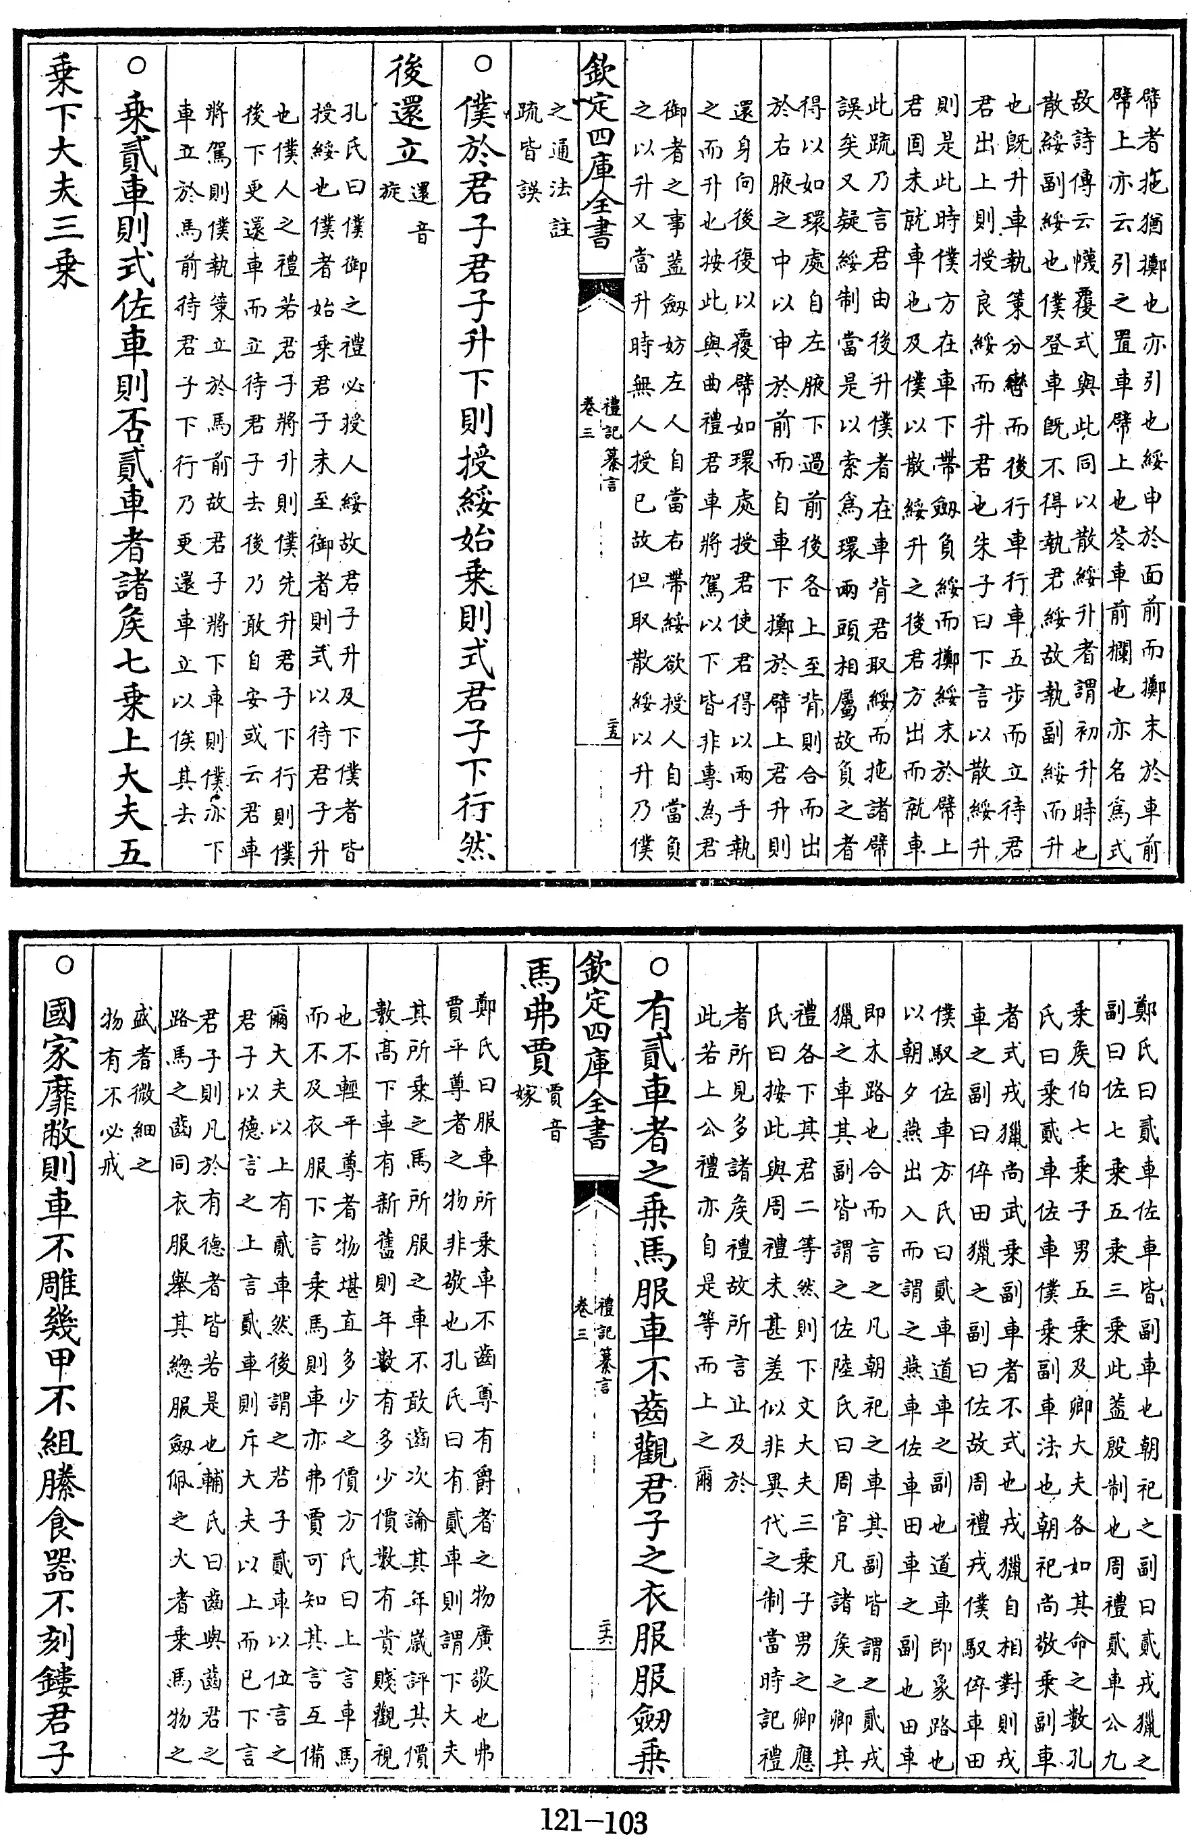 幦者拖猶擲也亦引也綏申於面前而擲末於車前
幦上亦云引之置車幦上也苓車前欄也亦名為式
故詩傳云幭覆式與此同以散綏升者謂初升時也
散綏副綏也僕登車既不得執君綏故執副綏而升
也既升車執策分轡而後行車行車五步而立待君
君出上則授良綏而升君也朱子曰下言以散綏升
則是此時僕方在車下帶劒負綏而擲綏末於幦上
君固未就車也及僕以散綏升之後君方出而就車
此疏乃言君由後升僕者在車背君取綏而拖諸幦
誤矣又疑綏制當是以索為環兩頭相屬故負之者
得以如環處自左腋下過前後各上至背則合而出
於右腋之中以申於前而自車下擲於幦上君升則
還身向後復以覆幦如環處授君使君得以兩手執
之而升也按此與曲禮君車將駕以下皆非專為君
御者之事蓋劒妨左人自當右帶綏欲授人自當負
之以升又當升時無人授已故但取散綏以升乃僕
欽定四庫全書
禮記纂言
卷三
三五
之通法註
疏皆誤
○僕於君子君子升下則授綏始乗則式君子下行然
後還立還音
旋
孔氏曰僕御之禮必授人綏故君子升及下僕者皆
授綏也僕者始乗君子未至御者則式以待君子升
也僕人之禮若君子將升則僕先升君子下行則僕
後下更還車而立待君子去後乃敢自安或云君車
將駕則僕執策立於馬前故君子將下車則僕亦下
車立於馬前待君子下行乃更還車立以俟其去
○乗貳車則式佐車則否貳車者諸矦七乗上大夫五
乗下大夫三乗
鄭氏曰貳車佐車皆副車也朝祀之副曰貳戎獵之
副曰佐七乗五乗三乗此蓋殷制也周禮貳車公九
乗矦伯七乗子男五乗及卿大夫各如其命之數孔
氏曰乗貳車佐車僕乗副車法也朝祀尚敬乗副車
者式戎獵尚武乗副車者不式也戎獵自相對則戎
車之副曰倅田獵之副曰佐故周禮戎僕馭倅車田
僕馭佐車方氏曰貳車道車之副也道車即象路也
以朝夕燕出入而謂之燕車佐車田車之副也田車
即木路也合而言之凡朝祀之車其副皆謂之貳戎
獵之車其副皆謂之佐陸氏曰周官凡諸矦之卿其
禮各下其君二等然則下文大夫三乗子男之卿應
氏曰按此與周禮未甚差似非異代之制當時記禮
者所見多諸矦禮故所言止及於
此若上公禮亦自是等而上之爾
○有貳車者之乗馬服車不齒觀君子之衣服服劒乗
欽定四庫全書
禮記纂言
卷三
三六
馬弗賈賈音
嫁
鄭氏曰服車所乗車不齒尊有爵者之物廣敬也弗
賈平尊者之物非敬也孔氏曰有貳車則謂下大夫
其所乗之馬所服之車不敢齒次論其年歲評其價
數高下車有新舊則年數有多少價數有貴賤觀視
也不輕平尊者物堪直多少之價方氏曰上言車馬
而不及衣服下言乗馬則車亦弗賈可知其言互備
爾大夫以上有貳車然後謂之君子貳車以位言之
君子以德言之上言貳車則斥大夫以上而已下言
君子則凡於有德者皆若是也輔氏曰齒與齒君之
路馬之齒同衣服舉其總服劒佩之大者乗馬物之
盛者微細之
物有不必戒
○國家靡敝則車不雕幾甲不組縢食器不刻鏤君子
121-103